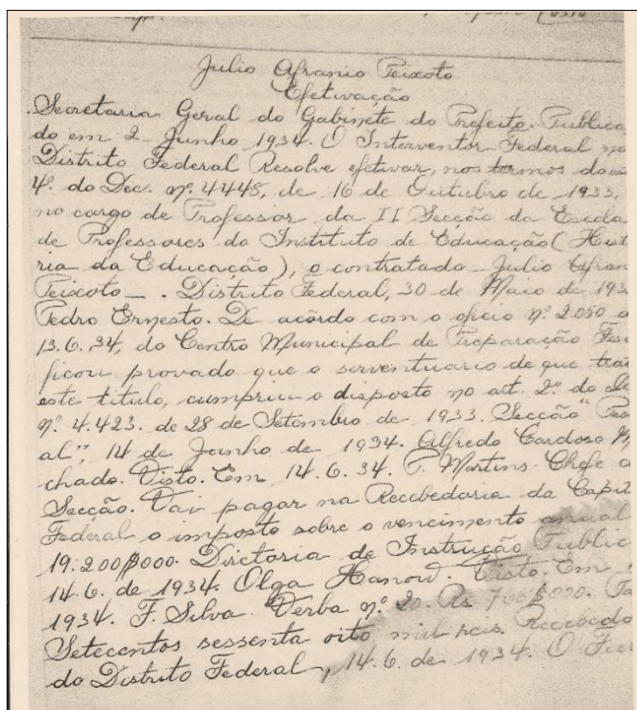 Julio Afranio Peixoto
Efetivação
Secretaria Geral do Gabinete do Prefeito. Publica
do em 2 Junho 1934. O Interventor Federal no
Distrito Federal Resolve efetivar, nos termos do
4º do Dec. nº 4448, de 16 de Outubro de 1933,
no cargo de Professor da II Secção da Escola
de Professores do Instituto de Educação (Histo
ria da Educação), o contratado Julio Afran
Peixoto _ . Distrito Federal, 30 de Maio de 193
Pedro Ernesto. De acôrdo com o oficio nº 2.050
13.6.34, do Centro Municipal de Preparação
ficou provado que o serventuario de que trata
este titulo, cumpriu o disposto no art. 2º do
nº 4.423. de 28 de Setembro de 1933. Secção "Pesso
al", 14 de Junho de 1934. Alfredo Cardoso
chado. Visto. Em 14.6.34. P. Martins Chefe
Secção. Vai pagar na Recebedoria da Capit
Federal o imposto sobre o vencimento anual
19:200$000. Diretoria de Instrução Public
14.6. de 1934. Olga Visto. Em
1934. F. Silva. Verba nº 20. Rs
Setecentos sessenta oito mil reis. Recebedo
do Distrito Federal, 14.6. de 1934. O